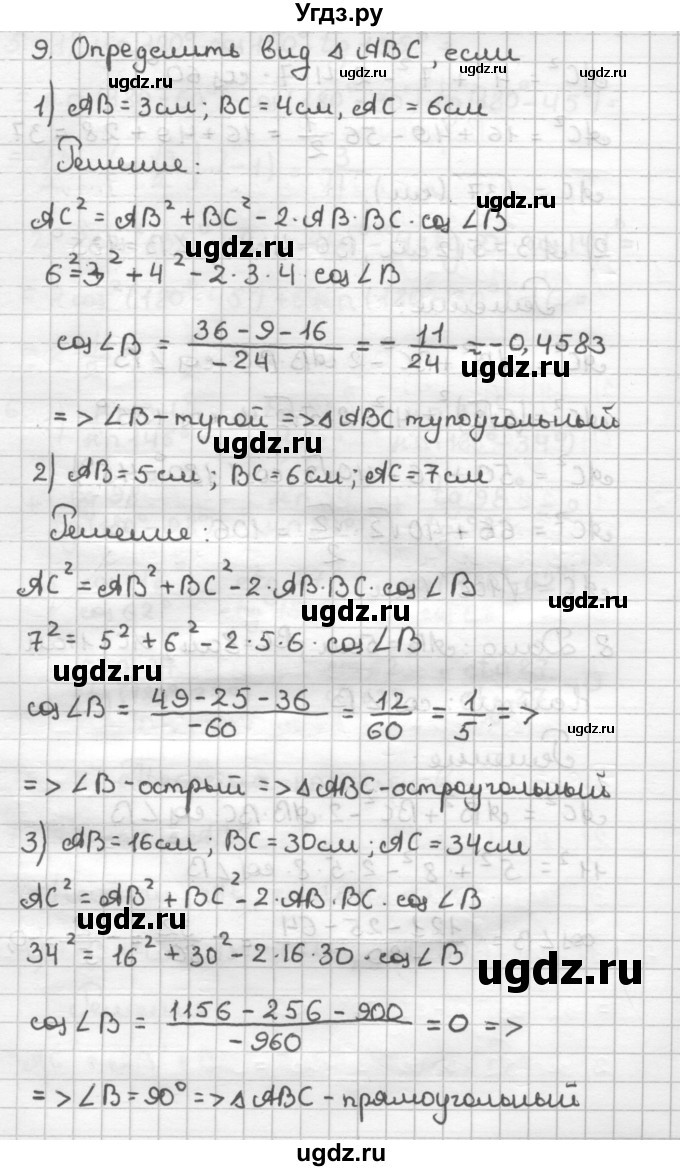 Угдз.ру
9. Определить вид △ ABC, если
1) AB = 3 см; BC = 4 см, AC = 6 см
Решение:
AC² = AB² + BC² - 2·AB·BC·cos∠B
6² = 3² + 4² - 2·3·4·cos∠B
cos∠B = (36 - 9 - 16)/(-24) = - 11/24 ≈ -0,4583
=> ∠B - тупой => △ ABC тупоугольный
2) AB = 5 см; BC = 6 см; AC = 7 см
Решение:
AC² = AB² + BC² - 2·AB·BC·cos∠B
7² = 5² + 6² - 2·5·6·cos∠B
cos∠B = (49 - 25 - 36)/(-60) = 12/60 = 1/5 =>
=> ∠B - острый => △ ABC - остроугольный
3) AB = 16 см; BC = 30 см; AC = 34 см
AC² = AB² + BC² - 2·AB·BC·cos∠B
34² = 16² + 30² - 2·16·30·cos∠B
cos∠B = (1156 - 256 - 900)/(-960) = 0 =>
=> ∠B = 90° => △ ABC - прямоугольный
ugdz.ru